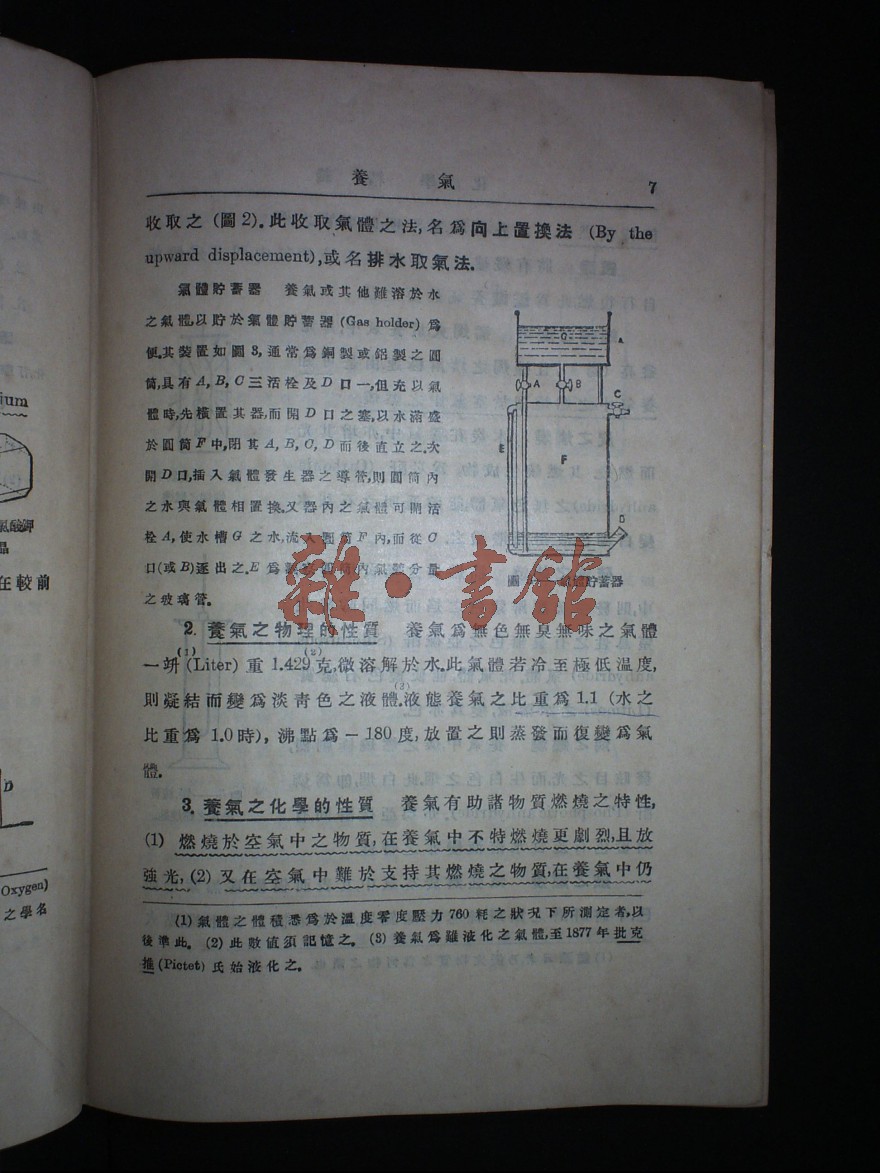 養氣 7
收取之 (圖2). 此收取氣體之法, 名爲向上置換法 (By the
upward displacement), 或名排水取氣法.
氣體貯蓄器 養氣或其他難溶於水
之氣體, 以貯於氣體貯蓄器 (Gas holder) 爲
便. 其裝置如圖3, 通常爲銅製或鋁製之圓
筒, 具有 A, B, C 三活栓及 D 口一, 但充以氣
體時, 先橫置其器, 而開 D 口之塞, 以水滿盛
於圓筒 F 中, 閉其 A, B, C, D 而後直立之. 次
開 D 口, 插入氣體發生器之導管, 則圓筒內
之水與氣體相置換. 又器內之氣體可開活
栓 A, 使水槽 G 之水, 流入圓筒 F 內, 而從 C
口 (或 B) 逐出之. E 爲 內氣 分量
之玻璃管.
G
A
A
B
C
E
F
D
圖 貯蓄器
2. 養氣之物理的性質 養氣爲無色無臭無味之氣體
一竔(1) (Liter) 重 1.429(2) 克, 微溶解於水. 此氣體若冷至極低溫度,
則凝結而變爲淡靑色之液體.(3) 液態養氣之比重爲 1.1 (水之
比重爲 1.0 時), 沸點爲 －180 度, 放置之則蒸發而復變爲氣
體.
3. 養氣之化學的性質 養氣有助諸物質燃燒之特性,
(1) 燃燒於空氣中之物質, 在養氣中不特燃燒更劇烈, 且放
強光, (2) 又在空氣中難於支持其燃燒之物質, 在養氣中仍
(1) 氣體之體積悉爲於溫度零度壓力 760 粍之狀況下所測定者, 以
後準此. (2) 此數値須記憶之. (3) 養氣爲難液化之氣體, 至 1877 年批克
推 (Pictet) 氏始液化之.
ium
氯酸鉀
晶
在較前
D
Oxygen)
之學名
雜·書館